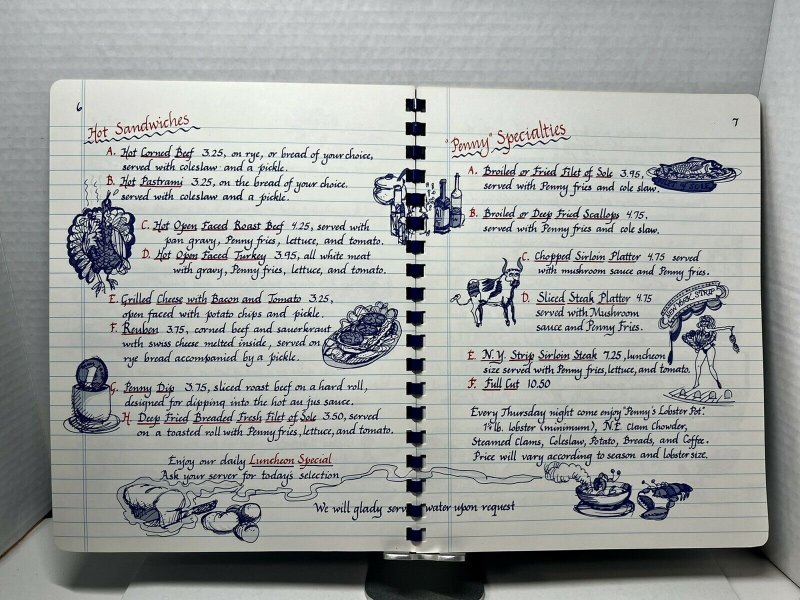 6
Hot Sandwiches
A. Hot Corned Beef 3.25, on rye, or bread of your choice,
served with coleslaw and a pickle.
B. Hot Pastrami 3.25, on the bread of your choice.
served with coleslaw and a pickle.
C. Hot Open Faced Roast Beef 4.25, served with
pan gravy, Penny fries, lettuce, and tomato.
D. Hot Open Faced Turkey 3.95, all white meat
with gravy, Penny fries, lettuce, and tomato.
E. Grilled Cheese with Bacon and Tomato 3.25,
open faced with potato chips and pickle.
F. Reuben 3.75, corned beef and sauerkraut
with swiss cheese melted inside, served on
rye bread accompanied by a pickle.
G. Penny Dip 3.75, sliced roast beef on a hard roll,
designed for dipping into the hot au jus sauce.
H. Deep Fried Breaded Fresh Filet of Sole 3.50, served
on a toasted roll with Penny fries, lettuce, and tomato.
Enjoy our daily Luncheon Special
Ask your server for today's selection
We will glady serve water upon request
7
"Penny" Specialties
A. Broiled or Fried Filet of Sole 3.95,
served with Penny fries and cole slaw.
B. Broiled or Deep Fried Scallops 4.75.
served with Penny fries and cole slaw.
C. Chopped Sirloin Platter 4.75 served
with mushroom sauce and Penny fries.
D. Sliced Steak Platter 4.75
served with Mushroom
sauce and Penny Fries.
NEW YORK STRIP
E. N.Y. Strip Sirloin Steak 7.25, luncheon
size served with Penny fries, lettuce, and tomato.
F. Full Cut 10.50
Every Thursday night come enjoy "Penny's Lobster Pot".
lb. lobster (minimum), N.E. Clam Chowder,
Steamed Clams, Coleslaw, Potato, Breads, and Coffee.
Price will vary according to season and lobster size.